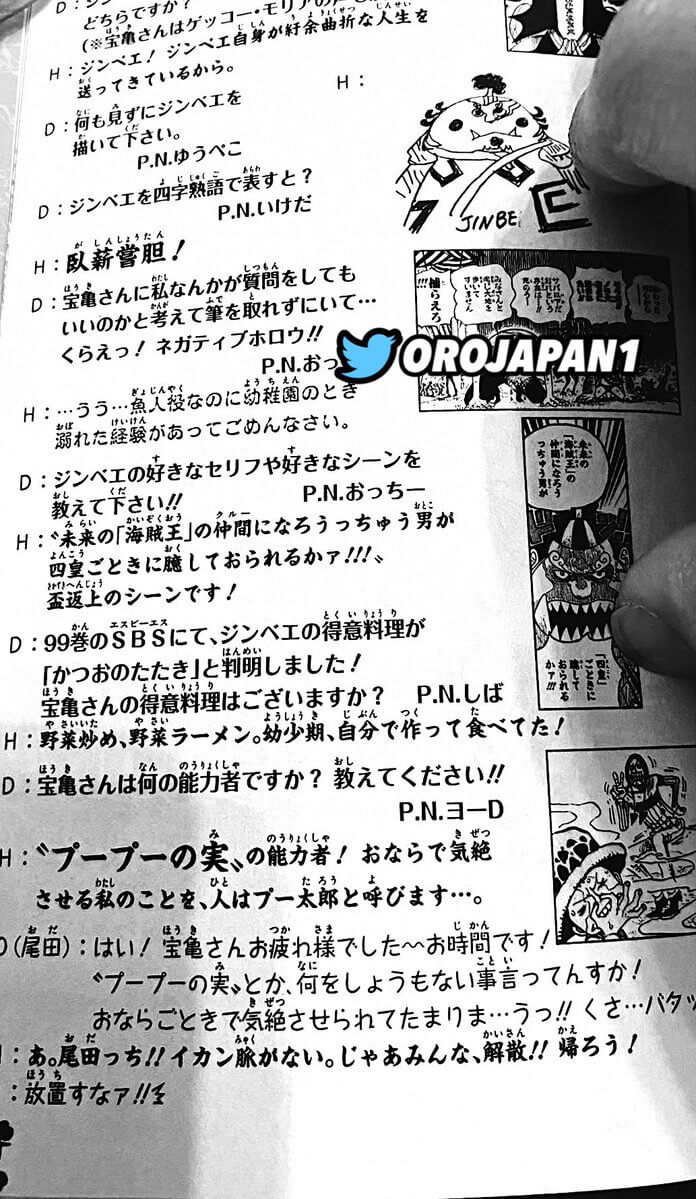 D：ジン
どちらですか？
（※宝亀さんはゲッコー・モリアの声も
H：ジンベエ！ ジンベエ自身が紆余曲折な人生を
送ってきているから。
D：何も見ずにジンベエを
描いて下さい。
P.N.ゆうぺこ
H：
JINBE
D：ジンベエを四字熟語で表すと？
P.N.いけだ
H：臥薪嘗胆！
D：宝亀さんに私なんかが質問をしても
いいのかと考えて筆を取れずにいて…
くらえっ！ ネガティブホロウ!!
P.N.おっ
OROJAPAN1
H：…うう…魚人役なのに幼稚園のとき
溺れた経験があってごめんなさい。
D：ジンベエの好きなセリフや好きなシーンを
教えて下さい!!
P.N.おっちー
H：〝未来の「海賊王」の仲間になろうっちゅう男が
四皇ごときに臆しておられるかァ!!!〟
盃返上のシーンです！
未来の
「海賊王」の
仲間になろう
っちゅう男が
「四皇」
ごときに
臆して
おられる
かァ!!!
D：99巻のSBSにて、ジンベエの得意料理が
「かつおのたたき」と判明しました！
宝亀さんの得意料理はございますか？ P.N.しば
H：野菜炒め、野菜ラーメン。幼少期、自分で作って食べてた！
D：宝亀さんは何の能力者ですか？ 教えてください!!
P.N.ヨーD
H：〝プープーの実〟の能力者！ おならで気絶
させる私のことを、人はプー太郎と呼びます…。
O（尾田）：はい！ 宝亀さんお疲れ様でした〜お時間です！
〝プープーの実〟とか、何をしょうもない事言ってんすか！
おならごときで気絶させられてたまりま…うっ!! くさ…バタッ
：あ。尾田っち!! イカン脈がない。じゃあみんな、解散!! 帰ろう！
：放置すなァ!!